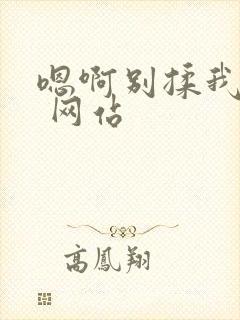 嗯啊别揉我
网佔
高鳳翔